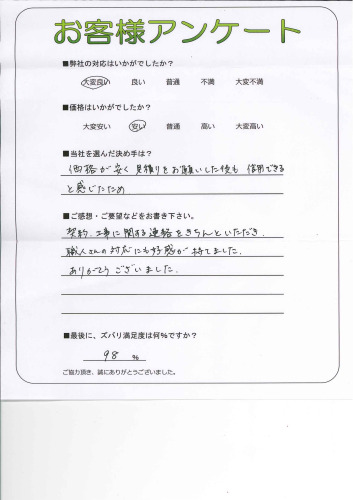 お客様アンケート
■弊社の対応はいかがでしたか？
大変良い 良い 普通 不満 大変不満
■価格はいかがでしたか？
大変安い 安い 普通 高い 大変高い
■当社を選んだ決め手は？
価格が安く見積りをお願いした後も信用できる
と感じたため
■ご感想・ご要望などをお書き下さい。
契約、工事に関する連絡をきちんといただき、
職人さんの対応にも好感が持てました。
ありがとうございました。
■最後に、ズバリ満足度は何％ですか？
98 ％
ご協力頂き、誠にありがとうございました。